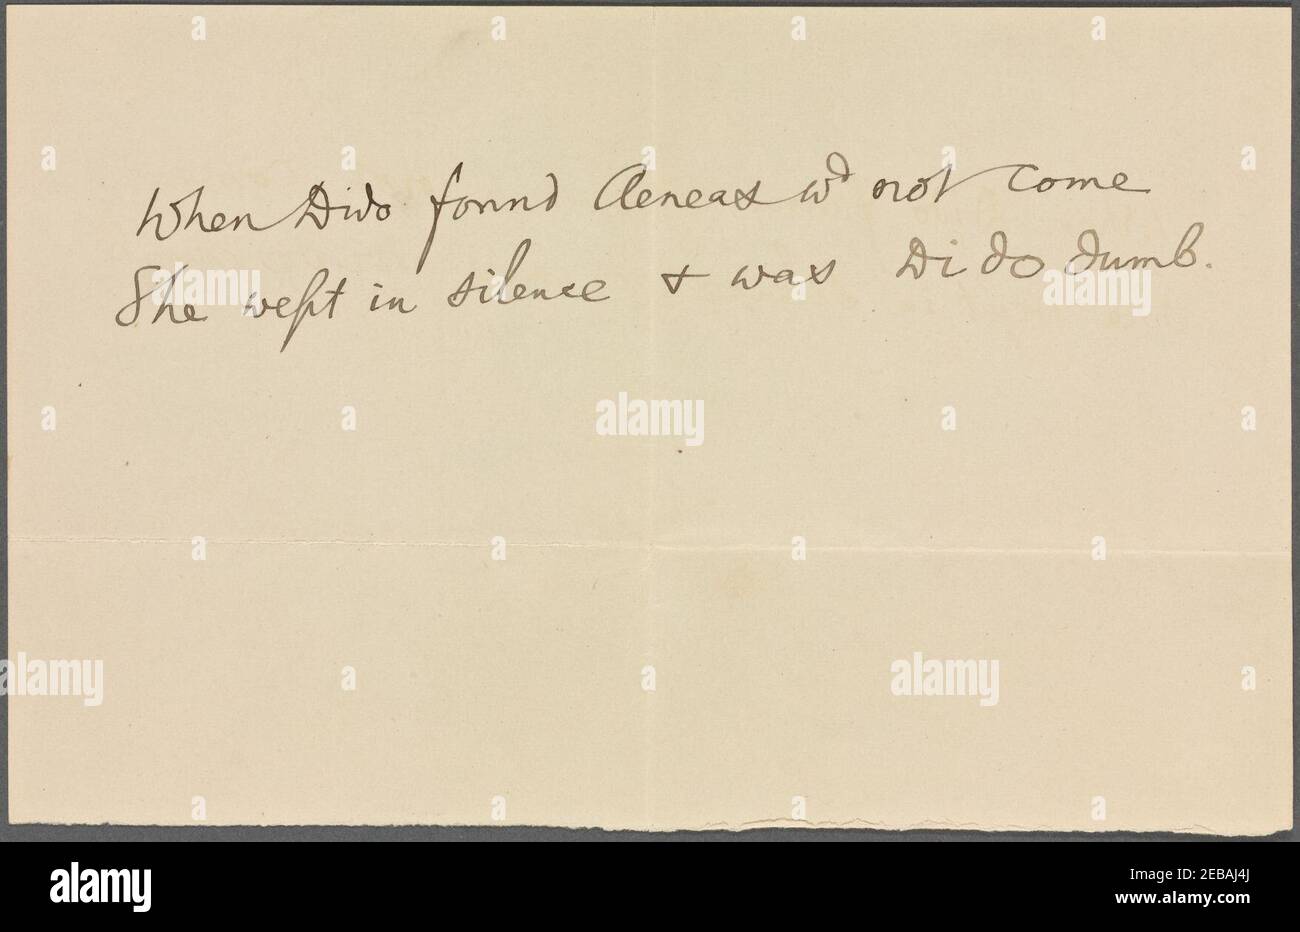 When Dido found Aeneas wd not come
She wept in silence & was Di do dumb.
alamy
alamy
alamy
alamy
alamy
alamy
Image ID: 2EBAJ4J
www.alamy.com